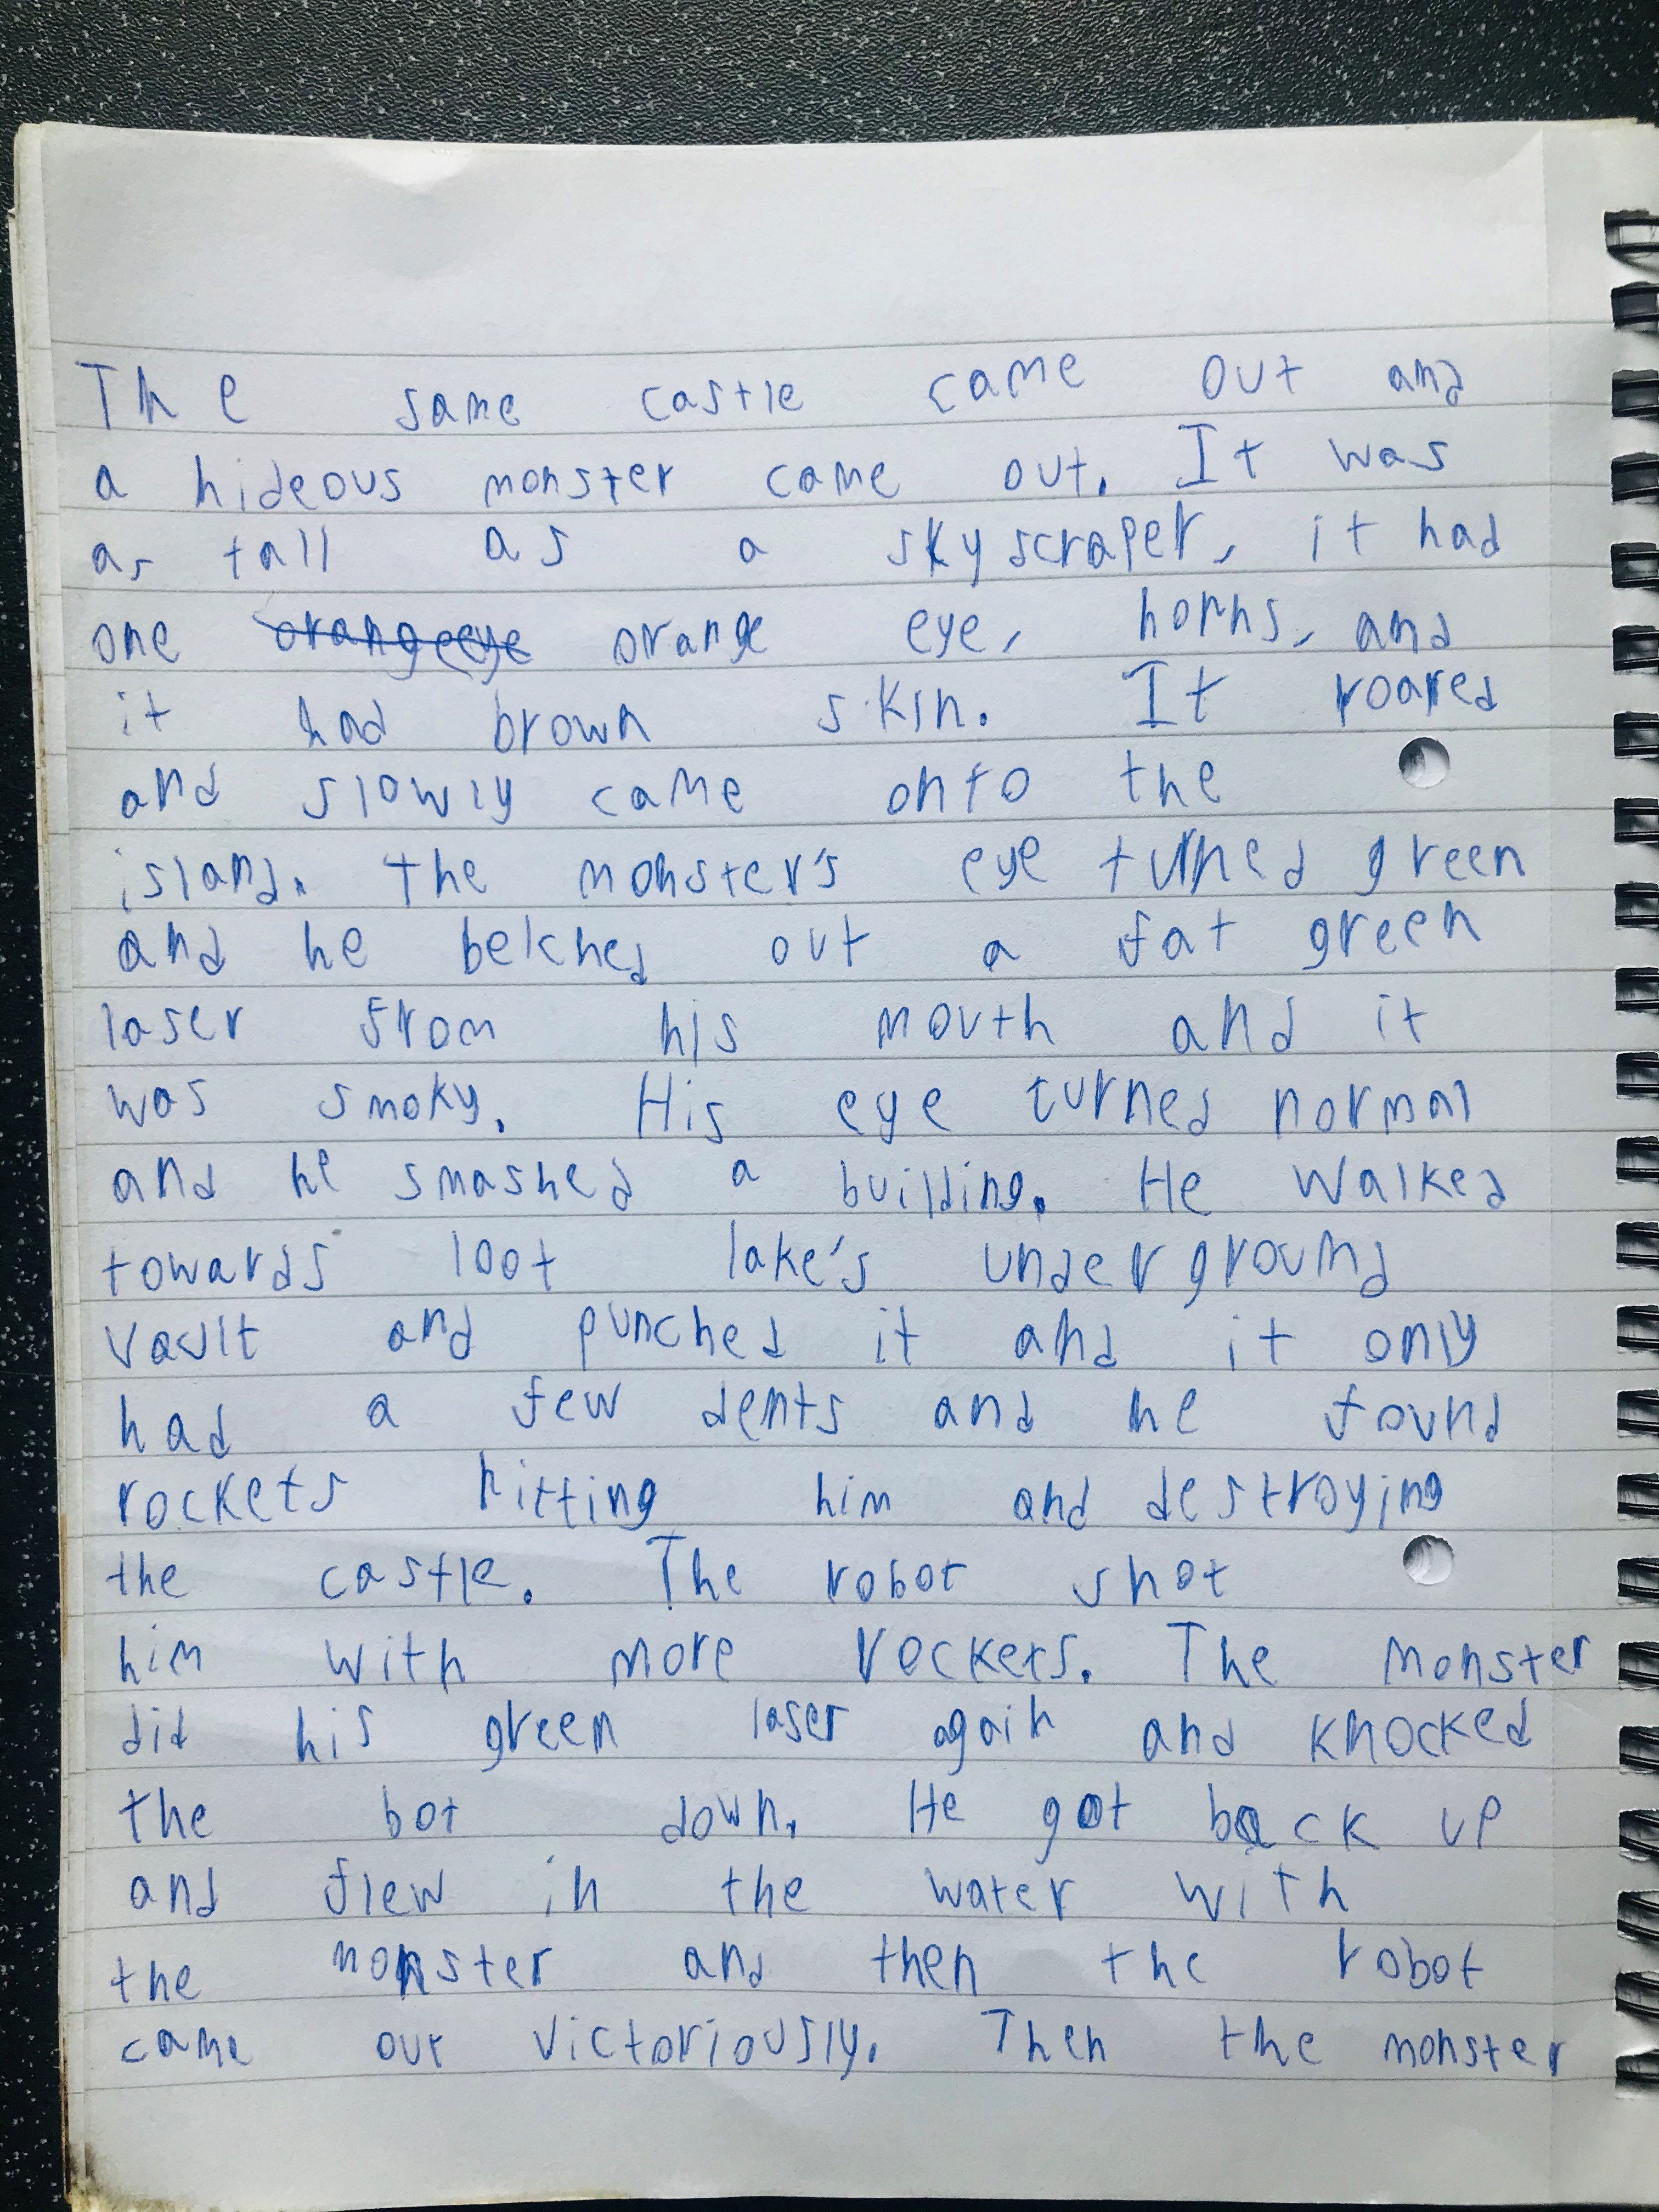 The same castle came out and
a hideous monster came out. It was
as tall as a skyscraper, it had
one orangeeye orange eye, horns, and
it had brown skin. It roared
and slowly came onto the
island. The monster's eye turned green
and he belched out a fat green
laser from his mouth and it
was smoky. His eye turned normal
and he smashed a building. He walked
towards loot lake's underground
vault and punched it and it only
had a few dents and he found
rockets hitting him and destroying
the castle. The robot shot
him with more rockets. The monster
did his green laser again and knocked
the bot down. He got back up
and flew in the water with
the monster and then the robot
came out victoriously. Then the monster